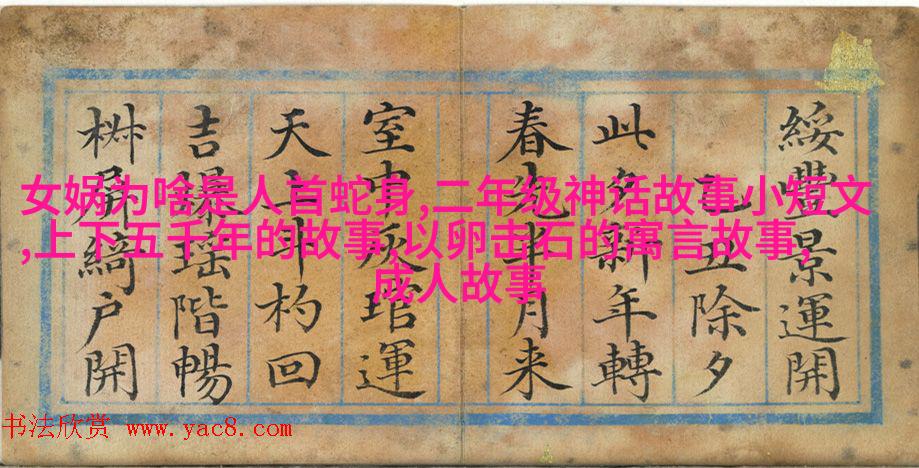 女娲为啥是人首蛇身,二年级神话故事小短文
,上下五千年的故事,以卵击石的寓言故事,
成人故事
綏豐景運開
乙丑除夕
此夕新年轉
春先半月来
室中灰琯運
天上斗杓回
吉爆瑶階暢
椒屏綺户開
书法欣赏 www.yac8.com